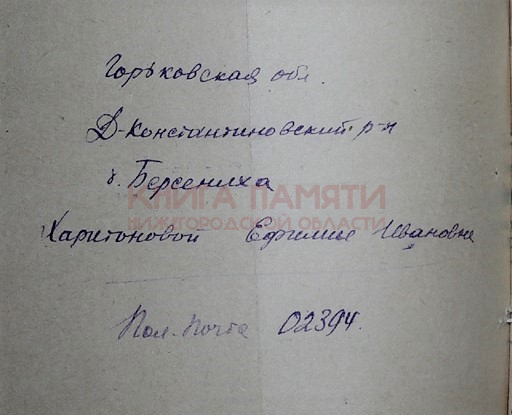 Горьковская обл.
Д-Константиновский р-н
д. Берсениха
КНИГА ПАМЯТИ
НИЖЕГОРОДСКОЙ ОБЛАСТИ
Харитоновой Ефимии Ивановне
Пол. Почта 02394.